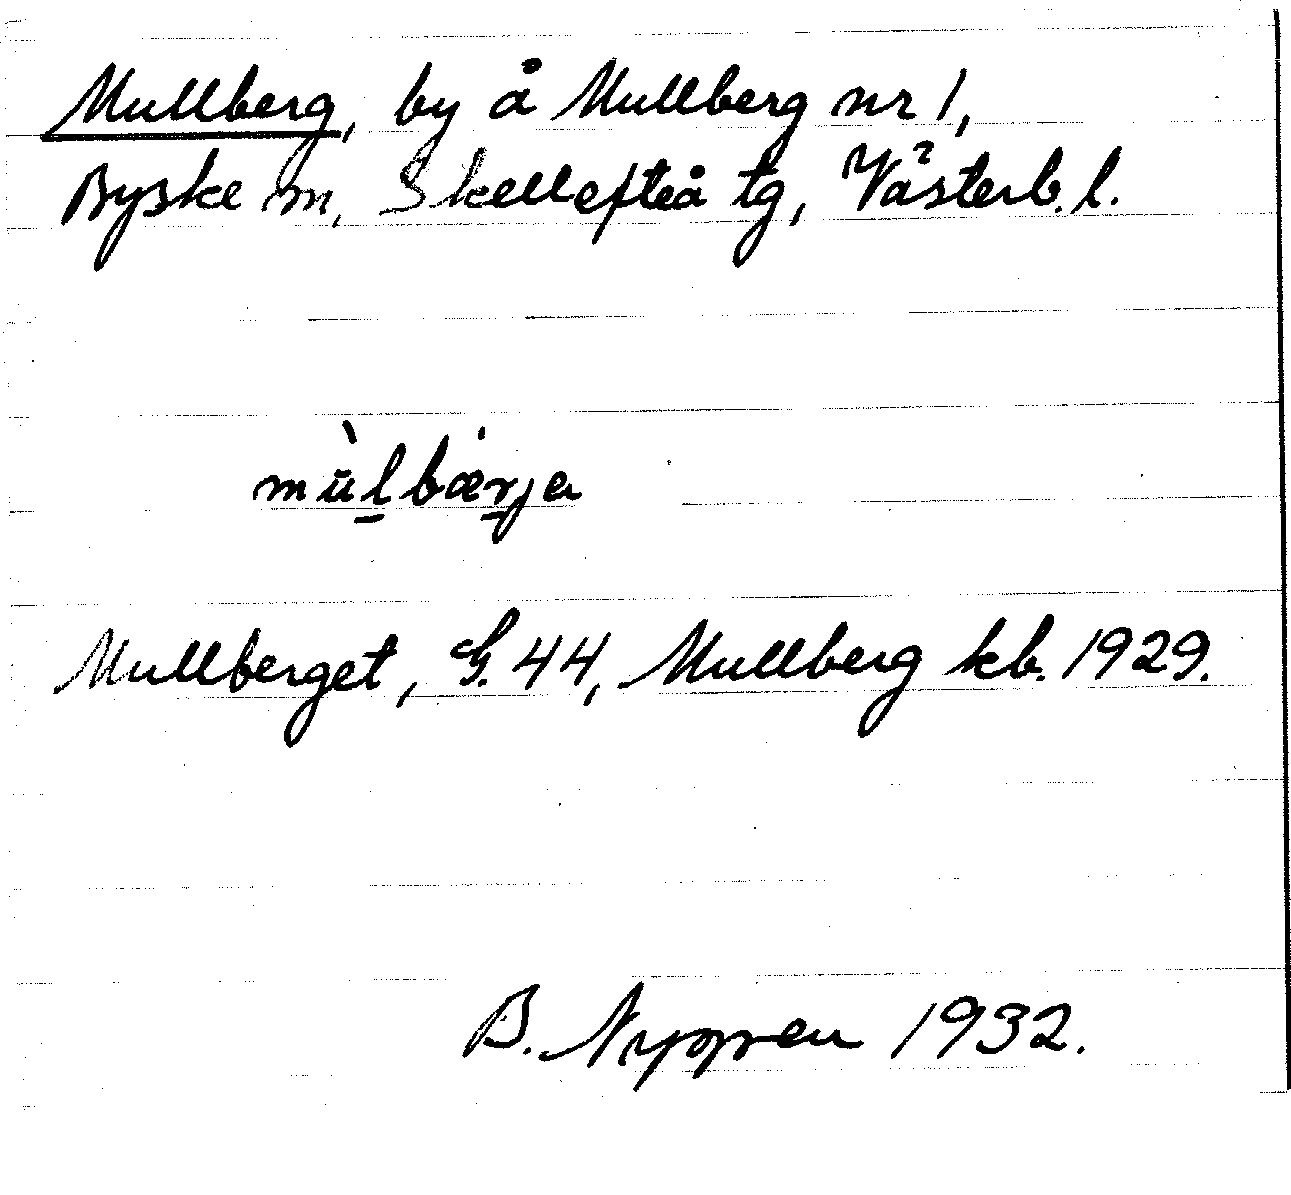 Mullberg, by å Mullberg nr 1,
Byske sn, Skellefteå tg, Västerb. l.
mùlbærja
Mullberget, G. 44, Mullberg kb. 1929.
B. 1932.